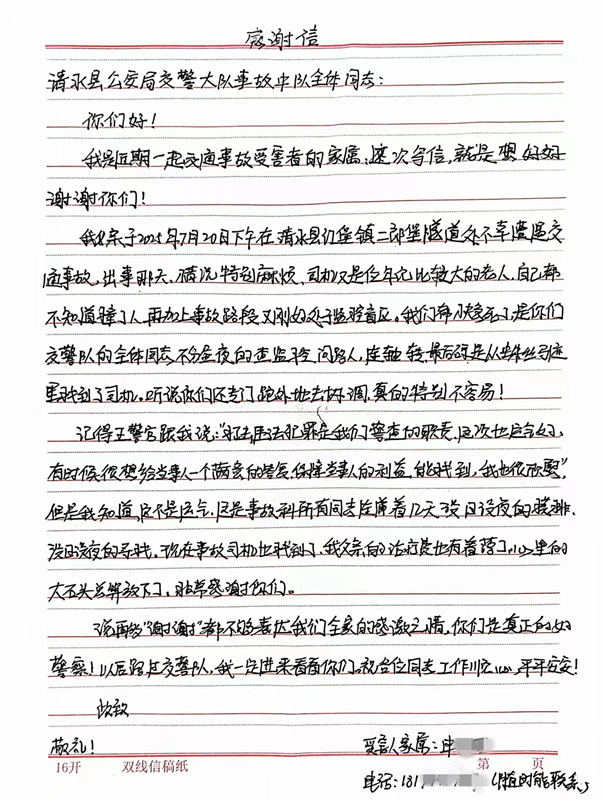 感谢信
清水县公安局交警大队事故中队全体同志：
你们好！
我是近期一起交通事故受害者的家属，这次写信，就是想好好
谢谢你们！
我父亲于2025年7月20日下午在清水县红堡镇二郎堡隧道外不幸遭遇交
通事故，出事那天，情况特别麻烦，司机又是位年纪比较大的老人，自己都
不知道撞了人，再加上事故路段又刚好处于监控盲区。我们都快急死了，是你们
交警队的全体同志不分昼夜的查监控、问路人，连轴转，最后硬是从蛛丝马迹
里找到了司机。听说你们还专门跑外地去协调，真的特别不容易！
记得王警官跟我说：“打击违法犯罪是我们警察的职责，这次也运气好，
有时候很想给当事人一个满意的答复，保障当事人的利益，能找到，我也很欣慰”，
但是我知道，这不是运气，这是事故科所有同志连续着12天没日没夜的摸排、
没日没夜的寻找。现在事故司机也找到了，我父亲的治疗费也有着落了，心里的
大石头总算放下了，非常感谢你们。
说再多“谢谢”都不够表达我们全家的感激之情，你们是真正的好
警察！以后路过交警队，我一定进来看看你们。祝各位同志工作顺心，平平安安！
此致
敬礼！ 受害人家属：申
16开 双线信稿纸 第 页
电话：181